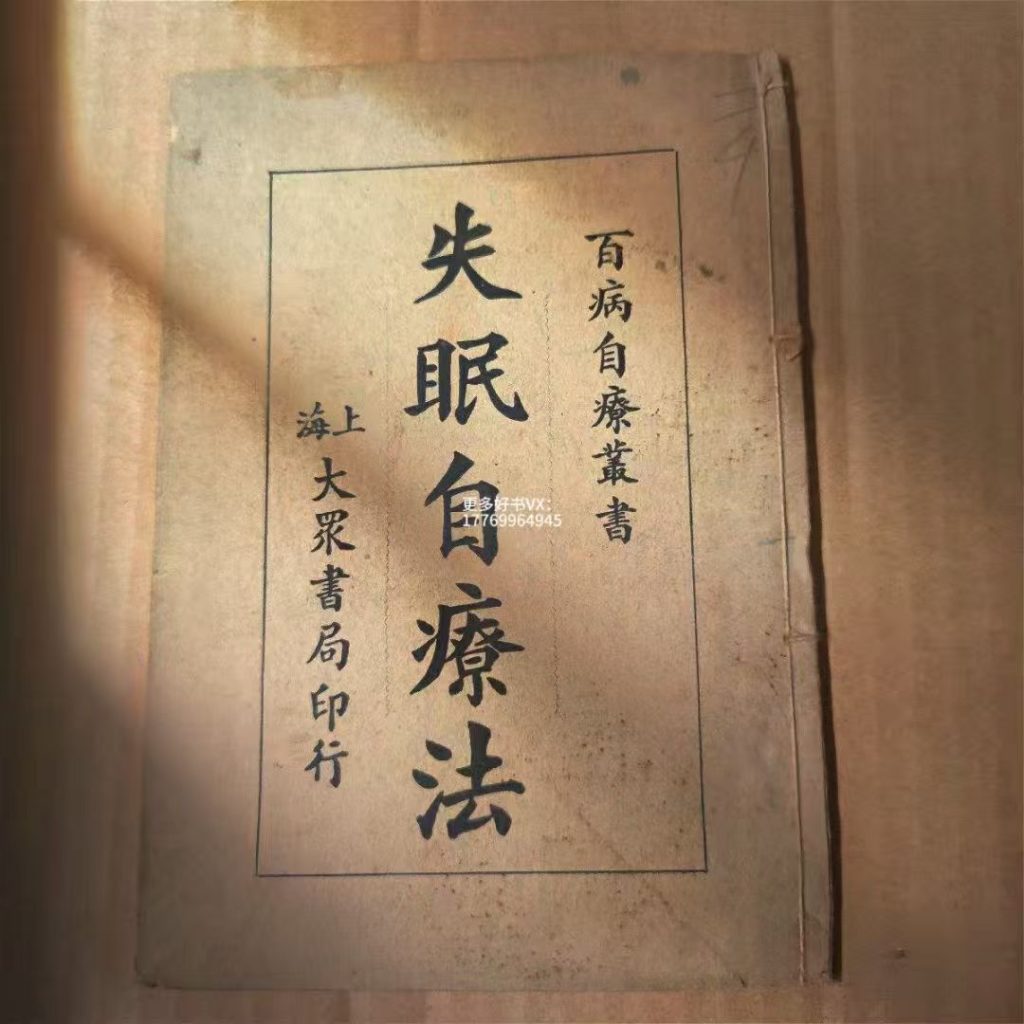 百病自療叢書
失眠自療法
上海
大眾書局印行
更多好书VX:
17769964945